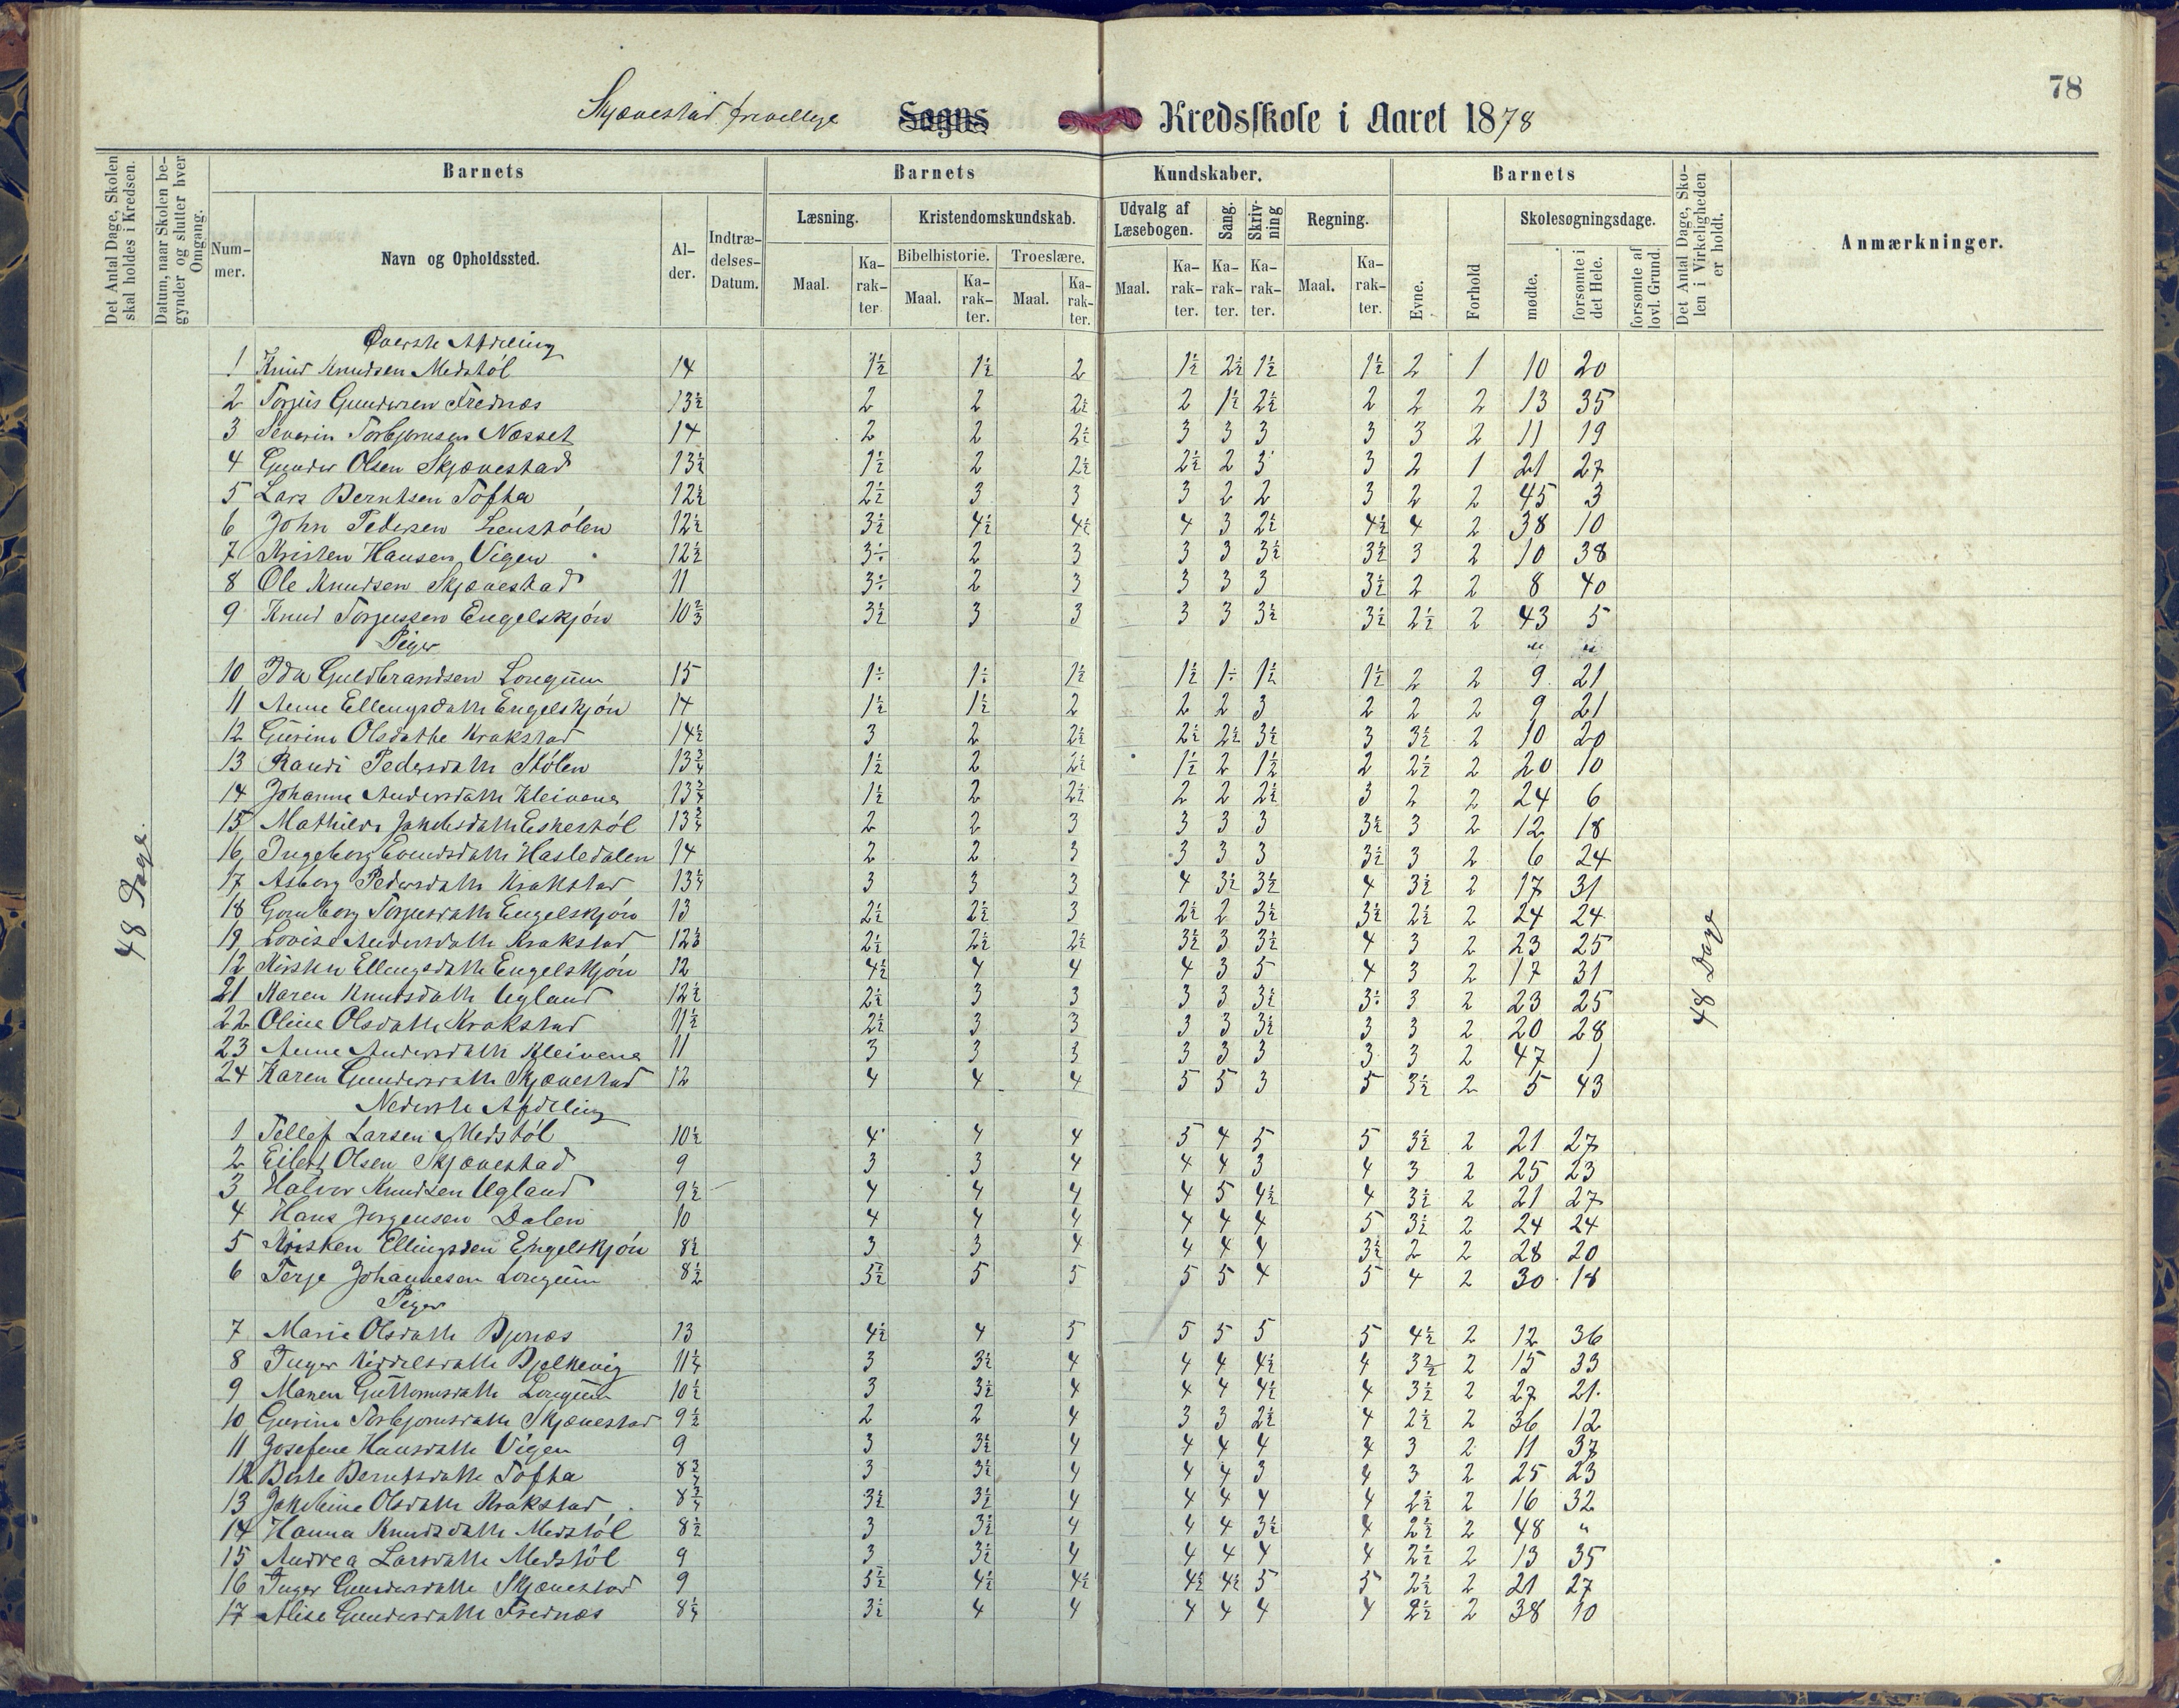 78
Skjævestad frivellige Sogns Kredsskole i Aaret 1878
Det Antal Dage, Skolen skal holdes i Kredsen.
Datum, naar Skolen begynder og slutter hver Omgang.
Barnets
Barnets Kundskaber.
Barnets
Det Antal Dage, Skolen i Virkeligheden er holdt.
Anmærkninger.
Nummer. Navn og Opholdssted. Alder. Indtrædelses-Datum.
Læsning. Kristendomskundskab. Udvalg af Læsebogen. Sang. Skrivning Regning. Evne. Forhold Skolesøgningsdage.
Bibelhistorie. Troeslære.
Maal. Karakter Maal. Karakter. Maal. Karakter. Maal. Karakter. Karakter. Karakter. Maal. Karakter. mødte. forsømte i det Hele. forsømte af lovl. Grund.
48 Dage.
48 Dage
Øverste Afdeling
1 Knud Knudsen Medstøl 14 1½ 1½ 2 1½ 2½ 1½ 1½ 2 1 10 20
2 Torjus Gundersen Frednæs 13½ 2 2 2½ 2 1½ 2½ 2 2 2 13 35
3 Severin Torbjørnsen Næsset 14 2 2 2½ 3 3 3 3 3 2 11 19
4 Gunder Olsen Skjævestad 13½ 1½ 2 2½ 2½ 2 3 3 2 1 21 27
5 Lars Berntsen Tofta 12½ 2½ 3 3 3 2 2 3 2 2 45 3
6 John Pedersen Lenstølen 12½ 3½ 4½ 4½ 4 3 2½ 4½ 4 2 38 10
7 Kristen Hansen Vigen 12½ 3÷ 2 3 3 3 3½ 3½ 3 2 10 38
8 Ole Knudsen Skjævestad 11 3÷ 2 3 3 3 3 3½ 2 2 8 40
9 Knud Torjussen Engelskjøn 10⅔ 3½ 3 3 3 3 3½ 3½ 2½ 2 43 5
Piger
10 Ida Guldbrandsen Longum 15 1÷ 1÷ 1½ 1½ 1÷ 1½ 1½ 2 2 9 21
11 Anne Ellingsdatte Engelskjøn 14 1½ 1½ 2 2 2 3 2 2 2 9 21
12 Gurine Olsdatte Krakstad 14½ 3 2 2½ 2½ 2½ 3½ 3 3½ 2 10 20
13 Randi Pedersdatte Stølen 13¾ 1½ 2 2½ 1½ 2 1½ 2 2½ 2 20 10
14 Johanne Andersdatte Kleivene 13¾ 1½ 2 2½ 2 2 2½ 3 2 2 24 6
15 Mathilde Jakobsdatte Eskestøl 13¾ 2 2 3 3 3 3 3½ 3 2 12 18
16 Ingeborg Evensdatte Hasledalen 14 2 2 3 3 3 3 3½ 3 2 6 24
17 Asborg Pedersdatte Krakstad 13¼ 3 3 3 4 3½ 3½ 4 3½ 2 17 31
18 Gomborg Torjusdatte Engelskjøn 13 2½ 2½ 3 2½ 2 3½ 3½ 2½ 2 24 24
19 Lovise Andersdatte Krakstad 12⅓ 2½ 2½ 2½ 3½ 3 3½ 4 3 2 23 25
12 Kirsten Ellingsdatte Engelskjøn 12 4½ 4 4 4 3 5 4 3 2 17 31
21 Karen Knutsdatte Ugland 12½ 2½ 3 3 3 3 3½ 3÷ 3 2 23 25
22 Oline Olsdatte Krakstad 11½ 2½ 3 3 3 3 3½ 3 3 2 20 28
23 Anne Andersdatte Kleivene 11 3 3 3 3 3 3 3 3 2 47 1
24 Karen Gundersdatte Skjævestad 12 4 4 4 5 5 3 5 3½ 2 5 43
Nederste Afdeling
1 Tellef Larsen Medstøl 10½ 4 4 4 5 4 5 5 3½ 2 21 27
2 Eilert Olsen Skjævestad 9 3 3 4 4 4 3 4 3 2 25 23
3 Halvor Knudsen Ugland 9½ 4 4 4 4 5 4½ 4 3½ 2 21 27
4 Hans Jørgensen Dalen 10 4 4 4 4 4 4 5 3½ 2 24 24
5 Kirsken Ellingsden Engelskjøn 8½ 3 3 4 4 4 4 3½ 2 2 28 20
6 Terje Johannesen Longum 8½ 5½ 5 5 5 5 4 5 4 2 30 18
Piger
7 Marie Olsdatte Bjønæs 13 4½ 4 5 5 5 5 5 4½ 2 12 36
8 Inger Kiddelsdatte Bjelkevig 11¼ 3 3½ 4 4 4 4½ 4 3½ 2 15 33
9 Maren Guttormsdatte Longum 10½ 3 3½ 4 4 4 4½ 4 3½ 2 27 21
10 Gurine Torbjørnsdatte Skjævestad 9½ 2 2 4 3 3 2½ 4 2½ 2 36 12
11 Josefine Hansdatte Vigen 9 3 3½ 4 4 4 4 4 3 2 11 37
12 Berte Berntsdatte Tofta 8¾ 3 3½ 4 4 4 3 4 3 2 25 23
13 Jakobine Olsdatte Krakstad 8¾ 3½ 3½ 4 4 4 4 4 2½ 2 16 32
14 Hanna Knudsdatte Medstøl 8½ 3 3½ 4 4 4 3½ 4 2½ 2 48 "
15 Andrea Larsdatte Medstøl 9 3 3½ 4 4 4 4 4 2½ 2 13 35
16 Inger Gundersdatte Skjævestad 9 5½ 4½ 4½ 4½ 4½ 5 5 2½ 2 21 27
17 Alise Gundersdatte Frednæs 8¼ 3½ 4 4 4 4 4 4 2½ 2 38 10